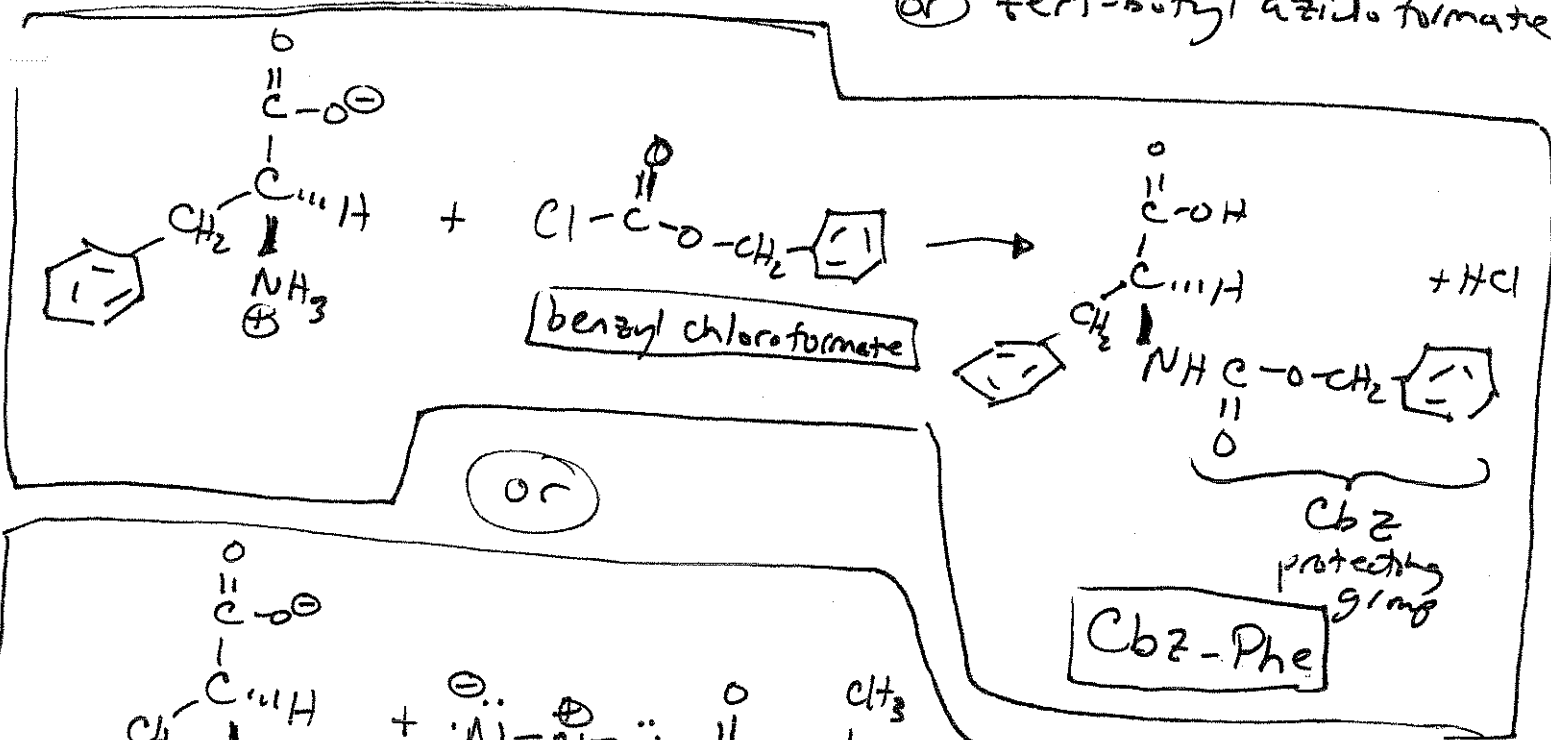 or tert-butyl azidoformate
O
C-O⊖
C H
CH2
NH3
⊕
+
O
Cl-C-O-CH2
benzyl chloroformate
O
C-OH
C H
CH2
NH C-O-CH2
O
+ HCl
Cbz
protecting
group
Cbz-Phe
or
O
C-O⊖
C H
+
⊖
⊕
O
CH3